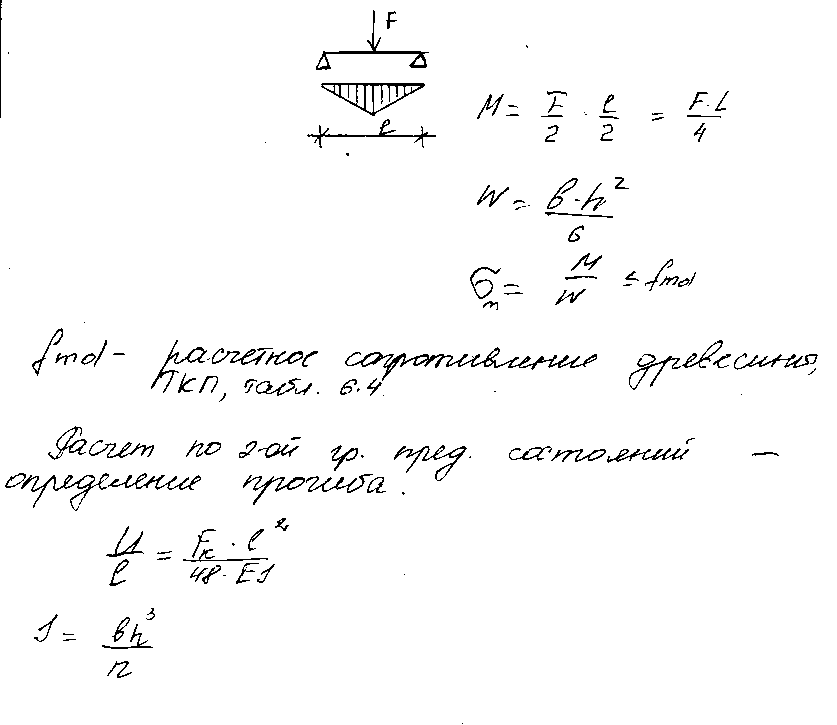 F
l
M = F/2 · l/2 = F·L/4
W = b·h²/6
σm = M/W ≤ fmd
fmd - расчетное сопротивление древесины,
ТКП, табл. 6.4
Расчет по 2-ой гр. пред. состояний —
определение прогиба.
U/l = Fк · l²/48·EJ
J = bh³/12